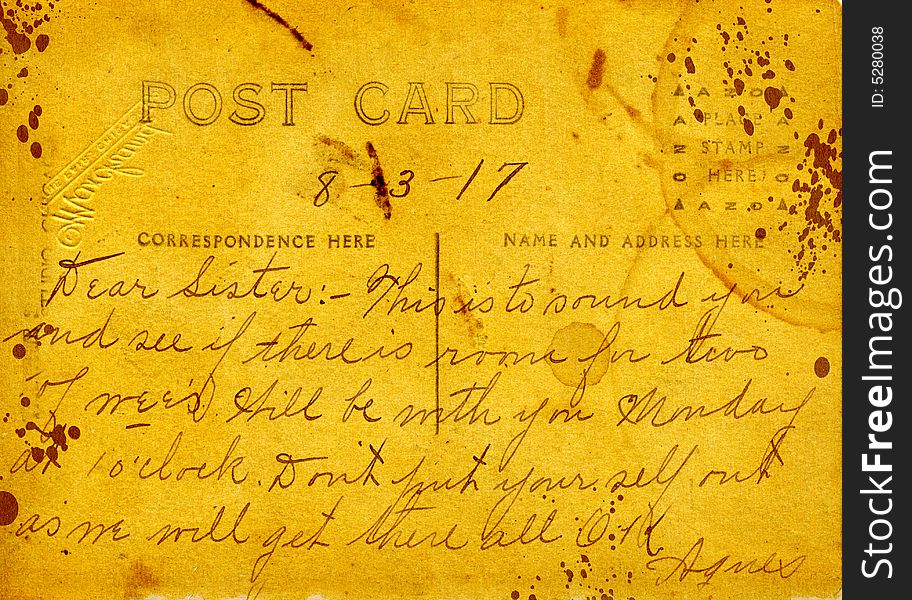 POST CARD
AZO
PLACE
STAMP
HERE
AZO
8-3-17
CORRESPONDENCE HERE
NAME AND ADDRESS HERE
Dear Sister:- This is to sound you
and see if there is room for two
of wee's. Will be with you Monday
at 1 o'clock. Don't put your self out
as we will get there all O.K.
Agnes
ID: 5280038
StockFreeImages.com